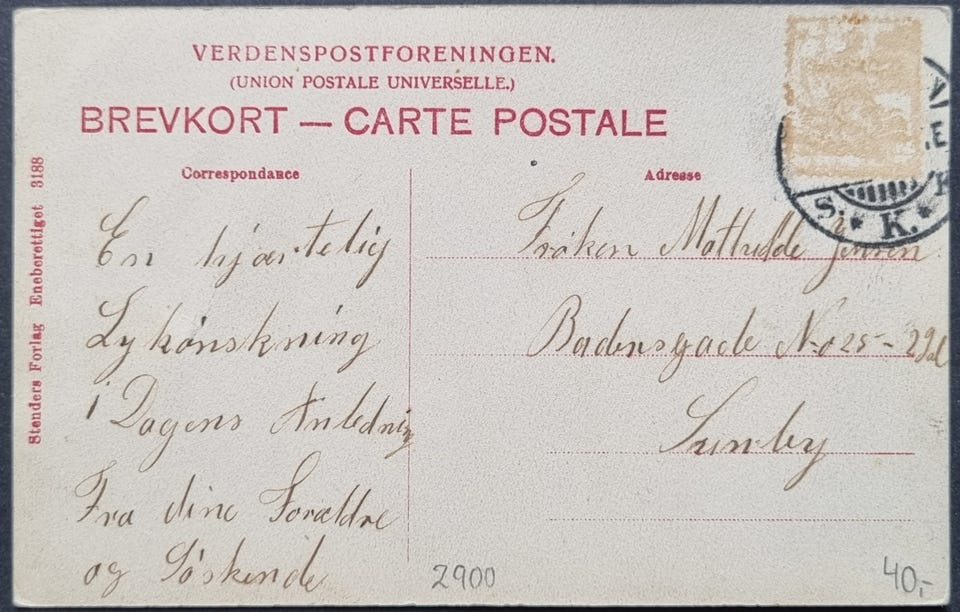 VERDENSPOSTFORENINGEN.
(UNION POSTALE UNIVERSELLE.)
BREVKORT — CARTE POSTALE
Correspondance
En hjærtelig
Lykønskning
i Dagens Anledning
Fra dine Forældre
og Søskende
Adresse
Frøken Mathilde Jensen
Badensgade No 25 - 2 Sal
Sunby
S. * K. * K
Stenders Forlag Eneberettiget 3188
2900
40,-